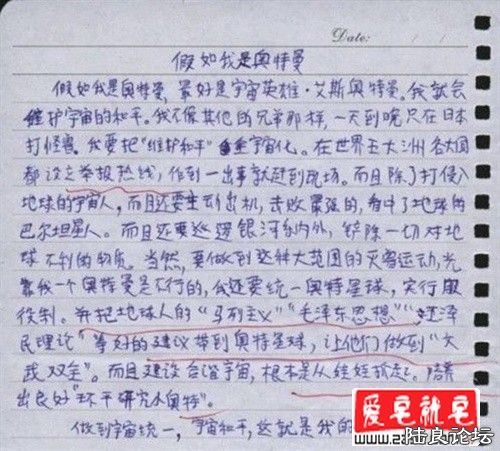 Date: / /
假如我是奥特曼
假如我是奥特曼,最好是宇宙英雄·艾斯奥特曼。我就会
维护宇宙的和平。我不像其他的兄弟那样,一天到晚只在日本
打怪兽。我要把“维护和平”宇宙化。在世界五大洲各大国
都设立举报热线,作到一出事就赶到现场。而且除了打侵入
地球的宇宙人,而且还要主动出机,击败最强的,看中了地球的
巴尔坦星人。而且还要巡逻银河系内外,铲除一切对地
球不利的物质。当然,要做到这种大范围的灭害运动,光
靠我一个奥特曼是不行的,我还要统一奥特星球,实行服
役制。并把地球人的“马列主义”“毛泽东思想”“江泽
民理论”等好的建议带到奥特星球,让他们做到“文
武双全”。而且建设合谐宇宙,根本是从娃娃抓起。培养
出良好“环平研究小奥特”。
做到宇宙统一,宇宙和平,这就是我的
爱皂就皂
陆良论坛